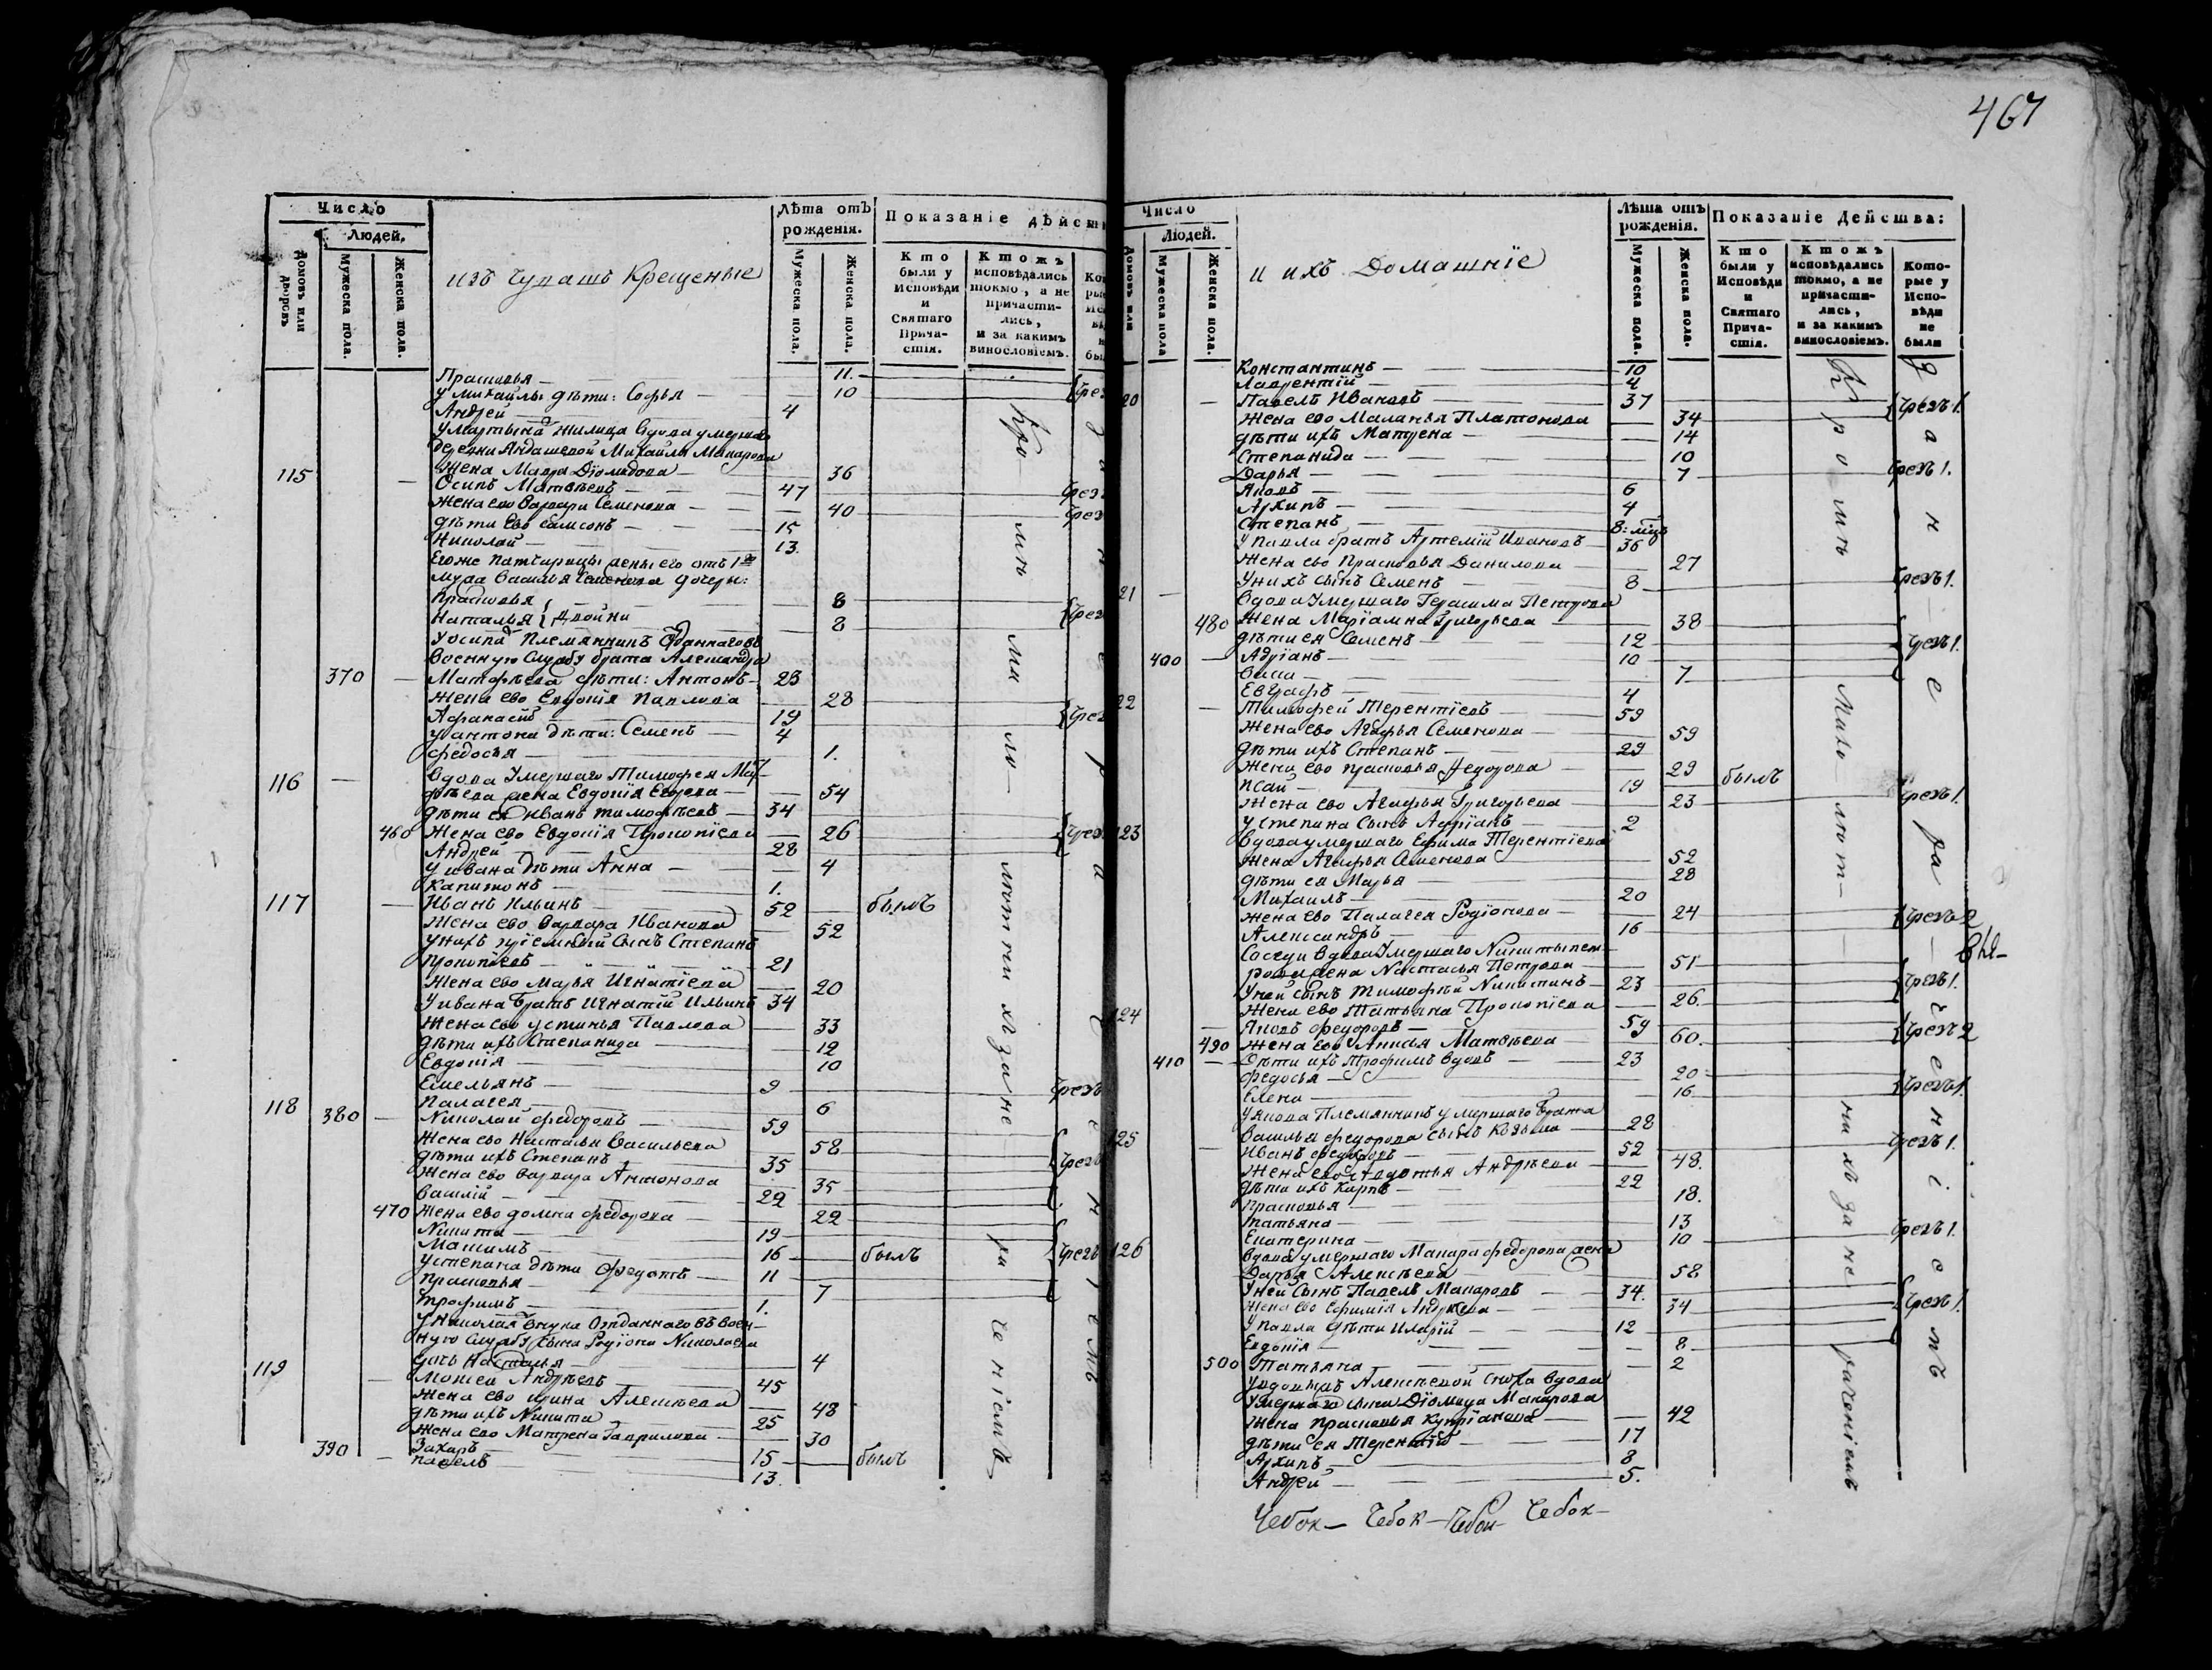 467
Число
Людей.
Домовъ или дворовъ
Мужеска пола.
Женска пола.
изъ Чувашъ Крещеные
Лѣта отъ рожденія.
Мужеска пола.
Женска пола.
Показаніе дѣйст
Кто были у Исповѣди и Святаго Прича-стія.
Ктожъ исповѣдались токмо, а не причасти-лись, и за какимъ винословіемъ.
Прасковья 11.
У михайлы дѣти: Софья 10
Андрей 4
У мартына жилица вдова умершаго
деревни Михайла Макарова
Жена Мавра Діомидова 36
115 Осипъ Матвѣевъ 47
Жена ево Варвара Семенова 40
дѣти Ево Самсонъ 15
Николай 13.
Василья Семенова дочери:
Прасковья 8
Наталья двойни 8
У осипа племянникъ Отданнаго въ
военную Службу брата Александра
370 Матфѣева дѣти: Антонъ 23
Жена ево Евдокія Павлова 28
Афанасій 19
у антона дѣти: Семенъ 4
Федосья 1.
116 Вдова Умершаго Тимофея Мат-
фѣева жена Евдокія Егорова 54
дѣти ея Иванъ тимофѣевъ 34
460 Жена ево Евдокія Прокопіева 26
Андрей 28
у ивана дѣти Анна 4
Капитонъ 1.
117 Иванъ Ильинъ 52 былъ
Жена ево Варвара Иванова 52
у нихъ пріемный Сынъ Степанъ
Прокопіевъ 21
Жена ево Марья Игнатіева 20
У ивана Братъ Игнатій Ильинъ 34
Жена ево устинья Павлова 33
дѣти ихъ Степанида 12
Евдокія 10
Емельянъ 9
Палагея 6
118 380 Николай Федоровъ 59
Жена ево Настасья Васильева 58
дѣти ихъ Степанъ 35
Жена ево Варвара Антонова 35
Василій 22
470 Жена ево домна федорова 22
Никита 19
Максимъ 16 былъ
У степана дѣти Федотъ 11
Прасковья 7
Трофимъ 1.
У николая внука Отданнаго въ воен-
ную Службу сына Родіона Николаева
дочь Настасья 4
119 Моисей Андрѣевъ 45
Жена ево ирина Алексѣева 48
дѣти ихъ Никита 25
Жена ево Матрена Гаврилова 30
390 Захаръ 15 былъ
Павелъ 13.
Число
Людей.
Домовъ или
Мужеска пола
Женска пола.
и ихъ Домашніе
Лѣта отъ рожденія.
Мужеска пола.
Женска пола.
Показаніе Дейсшва:
Кто были у Исповѣди и Святаго Прича-стія.
Ктожъ исповѣдались токмо, а не причасти-лись, и за какимъ винословіемъ.
Кото-рые у Испо-вѣди не были
Константинъ 10
Лаврентій 4
20 Павелъ Ивановъ 37
Жена ево Маланья Платонова 34
дѣти ихъ Матрена 14
Степанида 10
Дарья 7
Яковъ 6
Архипъ 4
Степанъ 8: мцъ
У павла братъ Артемій Ивановъ 36
Жена ево Прасковья Данилова 27
У нихъ сынъ Семенъ 8
21 Вдова Умершаго Герасима Петрова
480 Жена Маріамна Григорьева 38
дѣти ея Семенъ 12
400 Адріанъ 10
7
Евграфъ 4
22 Тимофей Терентіевъ 59
Жена ево Агафья Семенова 59
дѣти ихъ Степанъ 29
Жена ево прасковья Федорова 29
Исай 19 былъ
Жена ево Агафья Григорьева 23
у степана Сынъ Адріанъ 2
123 Вдова умершаго Ефима Терентіева
Жена Агафья Семенова 52
дѣти ея Марья 28
Михаилъ 20
Жена ево Палагея Родіонова 24
Александръ 16
Сосѣди вдова Умершаго Никиты
жена Настасья Петрова 51
У ней сынъ Тимофѣй Никитинъ 23
Жена ево Татьяна Прокопіева 26.
124 Яковъ Федоровъ 59
490 Жена ево Анисья Матвѣева 60.
410 Дѣти ихъ Трофимъ вдовъ 23
Федосья 20
Елена 16
У якова Племянникъ умершаго Брата
Василья Федорова сынъ Козьма 28
125 Иванъ Федоровъ 52
Жена ево Авдотья Андрѣева 48.
дѣти ихъ Карпъ 22
Прасковья 18.
Татьяна 13
Екатерина 10
126 Вдова умершаго Макара Федорова жена
Дарья Алексѣева 58
У ней Сынъ Павелъ Макаровъ 34.
Жена ево Ефимія Андрѣева 34
У павла дѣти Иларій 12
Евдокія 8
500 Татьяна 2
У вдовы Алексѣевой сноха вдова
Умершаго сына Діомида Макарова
Жена прасковья Купріанова 42
дѣти ея Терентій 17
Архипъ 8
Андрей 5.
грехъ 1.
грехъ 1.
грехъ 1.
грехъ 1.
грехъ 1.
грехъ 2
грехъ 1.
грехъ 2
грехъ 1.
грехъ 1.
грехъ 1.
грехъ 1.
Чебок— Чебок— Чебок— Чебок—